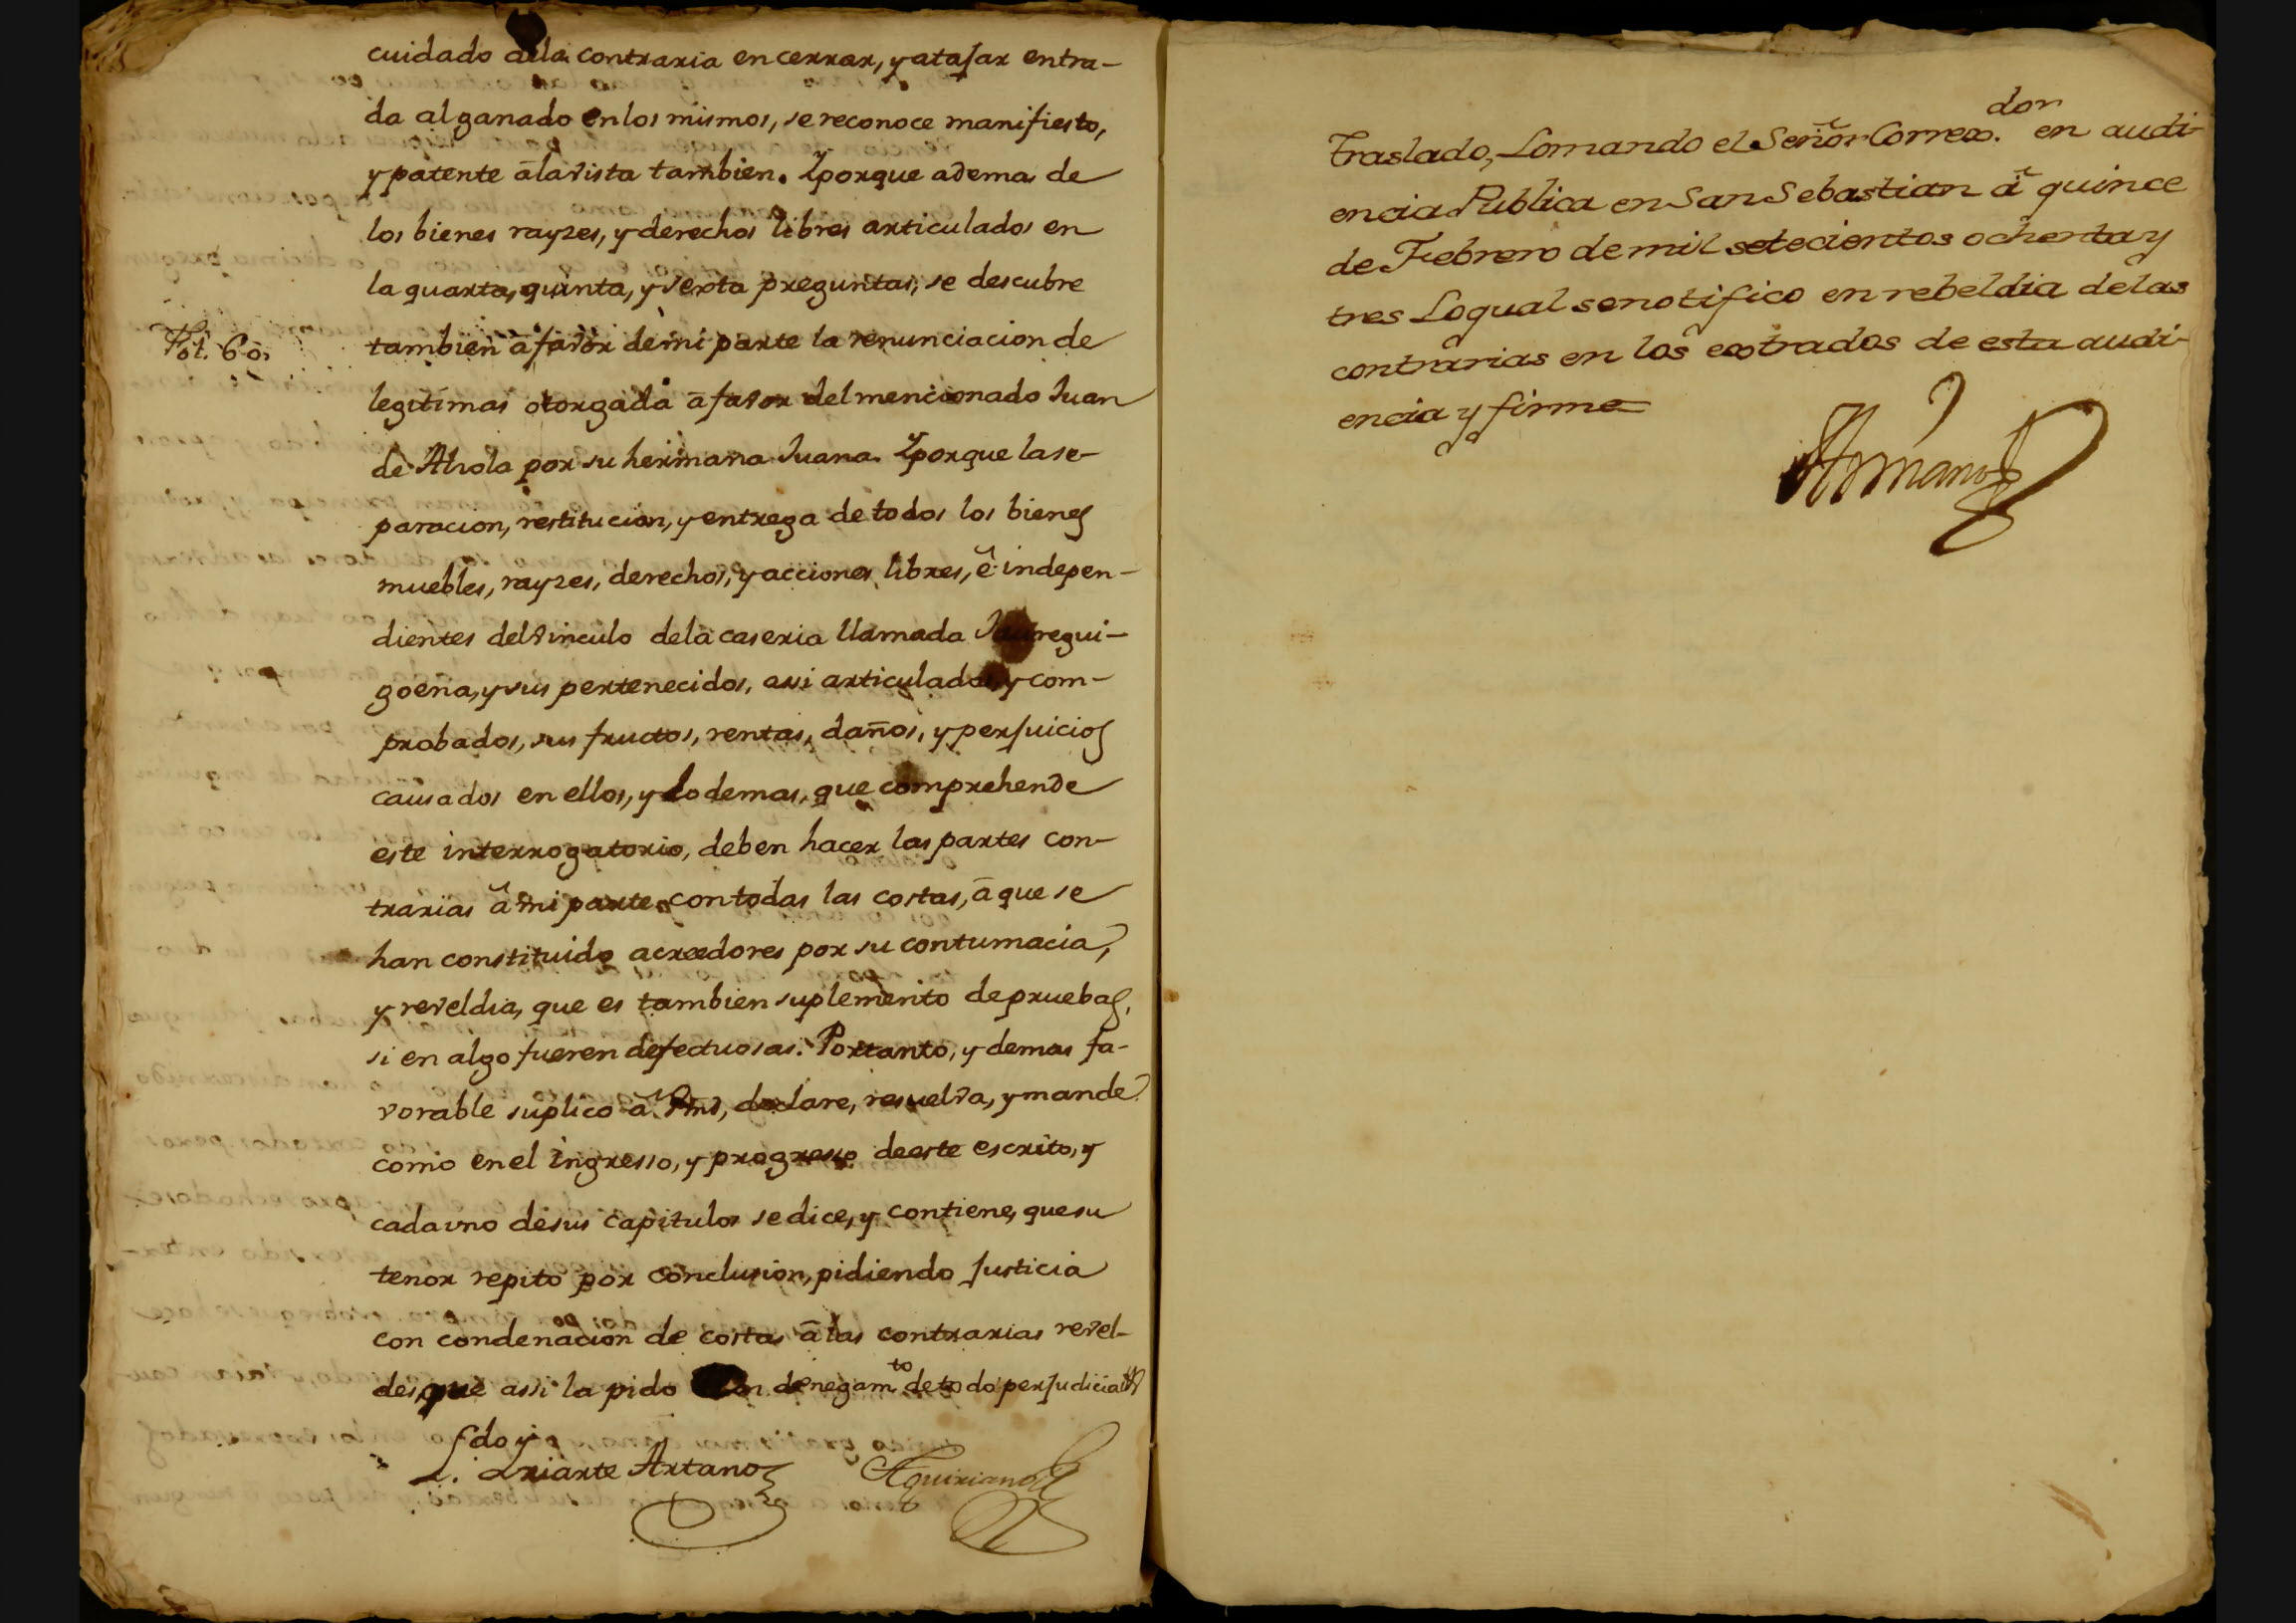 cuidado dela contraria en cerrar, y atajar entra-
da al ganado en los mismos, se reconoce manifiesto,
y patente â la vista tambien. Yporque ademas de
los bienes rayzes, y derechos libres articulados en
la quarta, quinta, y sexta preguntas, se descubre
Fol. 60.
tambien â favor de mi parte la renunciacion de
legitimas otorgada â favor del mencionado Juan
de Alzola por su hermana Juana. Yporque la se-
paracion, restitucion, y entrega de todos los bienes
muebles, rayzes, derechos, y acciones libres, ê indepen-
dientes del vinculo dela caseria llamada Jauregui-
goena, y sus pertenecidos, assi articulados, y com-
probados, sus fructos, rentas, daños, y perjuicios
causados en ellos, y lo demas, que comprehende
este interrogatorio, deben hacer las partes con-
trarias â mi parte con todas las costas, â que se
han constituido acreedores por su contumacia,
y reveldia, que es tambien suplemento de pruebas,
si en algo fueren defectuosas. Portanto, y demas fa-
vorable suplico â Vmd, declare, resuelva, y mande
como en el ingresso, y progresso de este escrito, y
cada vno de sus capitulos se dice, y contiene, que su
tenor repito por conclusion, pidiendo Justicia
con condenacion de costas â las contrarias revel-
des, que assi la pido con denegam.to de todo perjudicial
L. Yriarte Artano
Aquiriano
Traslado, Lo mando el Señor Correx.dor en audi-
encia Publica en San Sebastian â quince
de Febrero de mil setecientos ochenta y
tres Lo qual se notifico en rebeldia de las
contrarias en los extrados de esta audi-
encia y firme